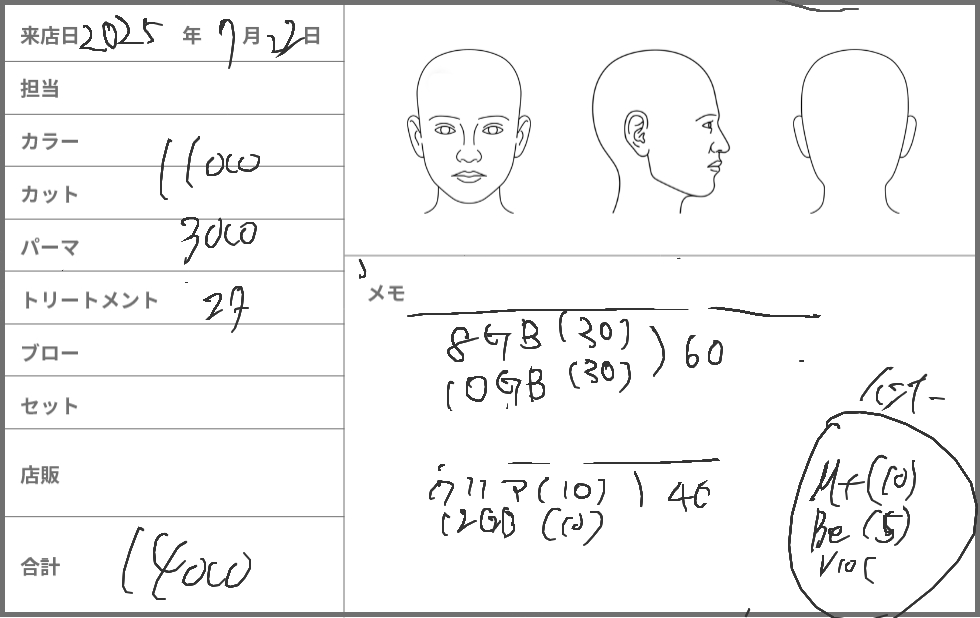 来店日 2025 年 7 月 22 日
担当
カラー
11000
カット
パーマ 3000
トリートメント 27
ブロー
セット
店販
合計 14000
メモ
8GB (30)
10GB (30) ) 60
クリア (10) ) 40
12GB (10)
Mt (10)
Be (5)